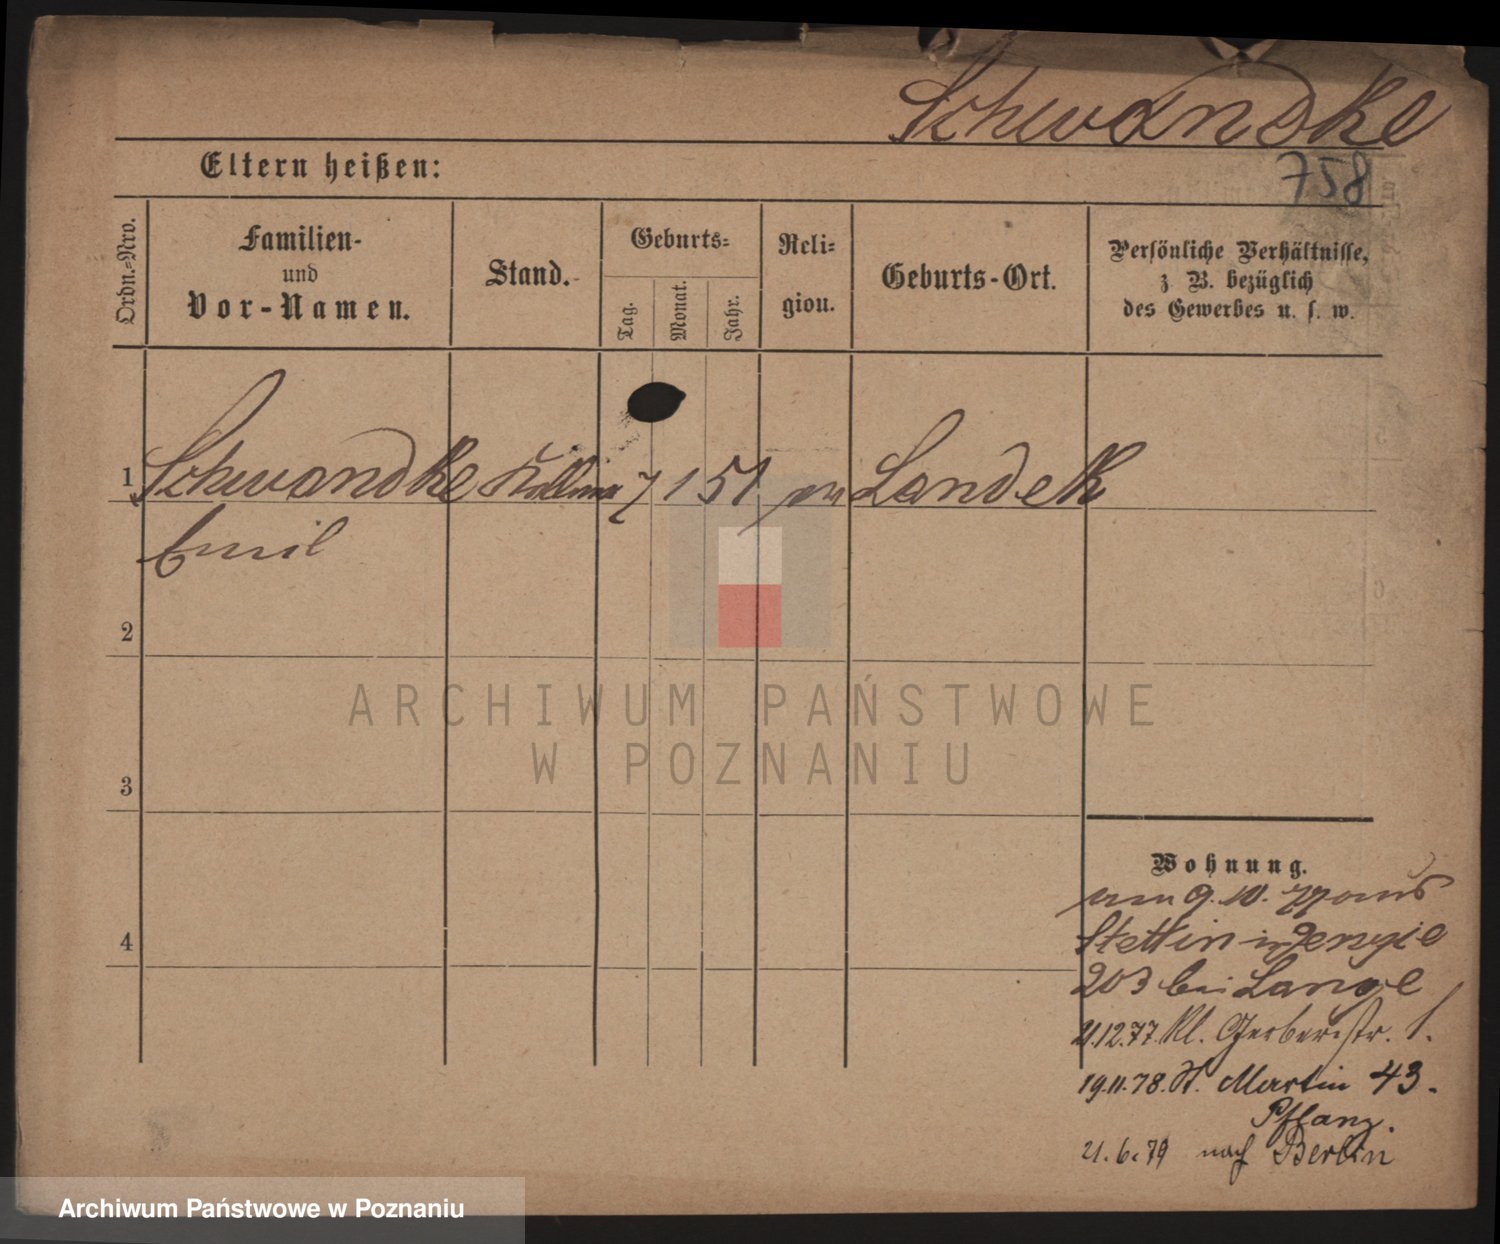 Schwandke
758
Eltern heißen:
Ordn.=Nro.
Familien-
und
Vor-Namen.
Stand.
Geburts=
Tag.
Monat.
Jahr.
Reli=
gion.
Geburts-Ort.
Persönliche Verhältnisse,
z B. bezüglich
des Gewerbes u. s. w.
1 Schwandke Kellner 7 1 51 ev Landek
Emil
2
3
4
ARCHIWUM PAŃSTWOWE
W POZNANIU
Wohnung.
am 9. 10. 77 aus
Stettin in Jersyce
203 bei Lange
21.12.77. Kl. Gerberstr. 1.
19.11.78. St. Martin 43.
Pflanz.
21.6.79 nach Berlin
Archiwum Państwowe w Poznaniu